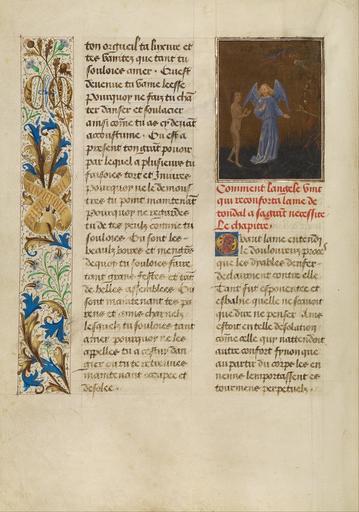 ton orgueil ta luxure et
tes vanitez que tant tu
souloies amer. Quest
devenue ta vaine leesse
Pourquoy ne fais tu chā
ter danser et soulacier
ainsi cōme tu as cy devāt
acoustume. Ou est a
present ton grant pouoir
par lequel a plusieurs tu
faisoies tort et Iniures
pourquoy ne le demōs
tres tu point maintenāt
Pourquoy ne regardes
tu de tes yeulx comme tu
souloies. Ou sont les
beaulx boires et mengiers
de quoy tu souloies faire
tant grans festes et tāt
de belles assemblees Ou
sont maintenant tes pa
rens et amis charnelz
lesquelz tu souloies tant
amer pourquoy ne les
appelles tu a cestui dan
gier ou tu te retrouves
maintenant
desolee.
Comment langele vint
qui reconforta lame de
tondal a sa grāt necessite
Le chapitre.
Quant lame entendy
le douloureux proces
que les dyables denfer
declairoient contre elle
Tant fut espouentee et
esbahie quelle ne scavoit
que dire ne penser. Ains
estoit en telle desolation
cōme celle qui nattendoit
autre confort synon que
au partir du corps les en
nemis lemportassent es
tourmens perpetuelz.